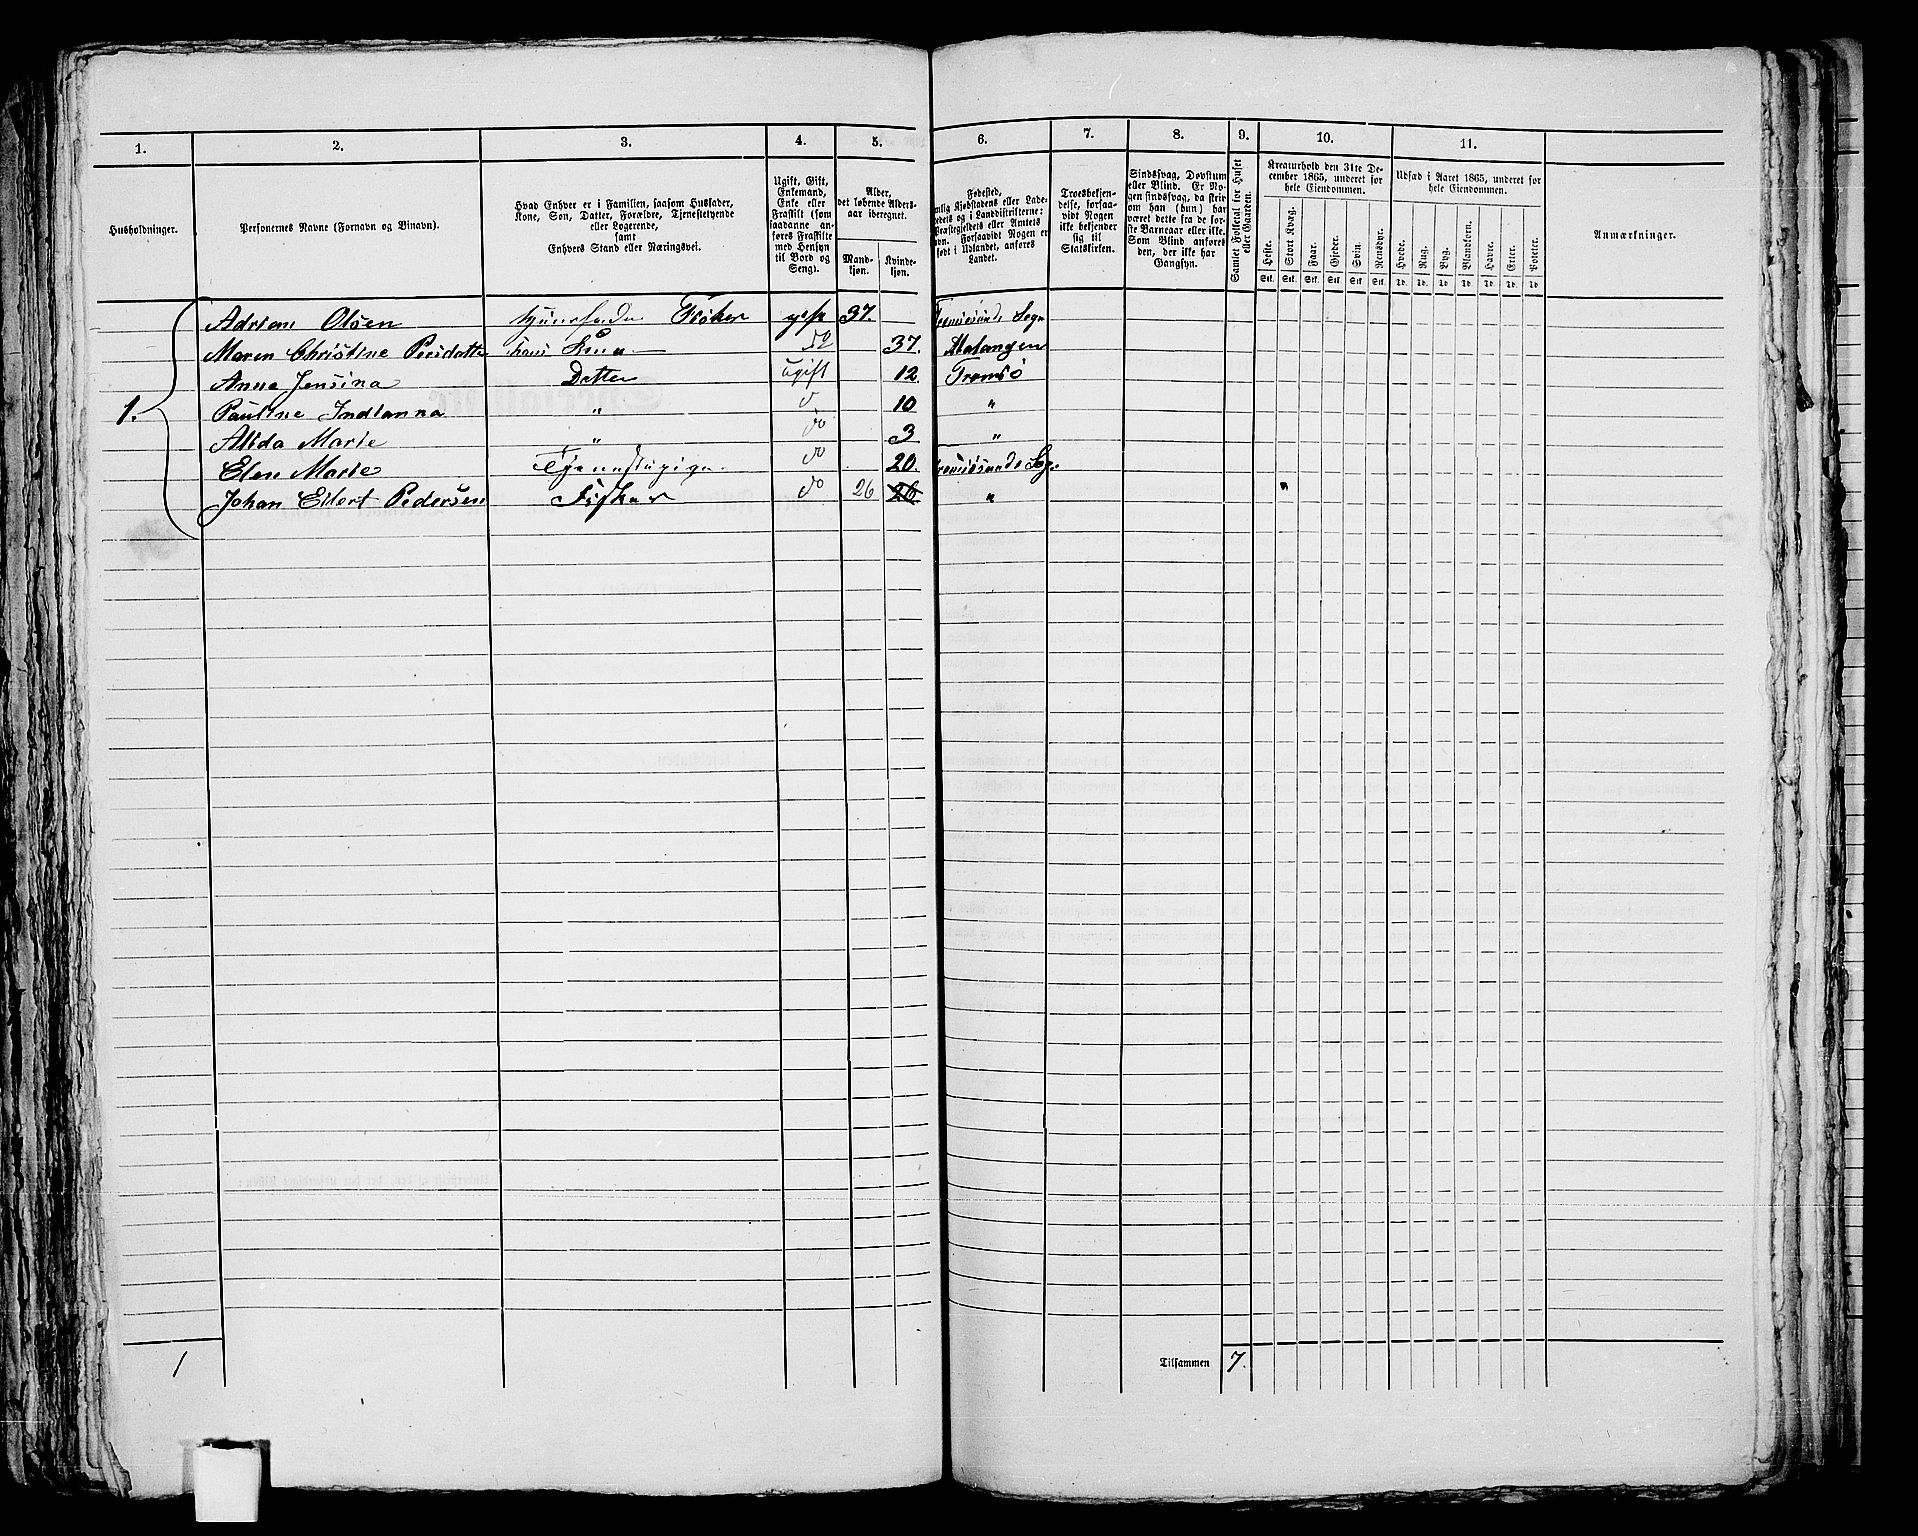 1. 2. 3. 4. 5. 6. 7. 8. 9. 10. 11.
Husholdninger.
Personernes Navne (Fornavn og Binavn).
Hvad Enhver er i Familien, saasom Husfader,
Kone, Søn, Datter, Forældre, Tjenestetyende
eller Logerende,
samt
Enhvers Stand eller Næringsvei.
Ugift, Gift,
Enkemand,
Enke eller
Fraskilt (som
saadanne an-
føres Fraskilte
med Hensyn
til Bord og
Seng).
Alder,
det løbende Alders-
aar iberegnet.
Mand-
kjøn.
Kvinde-
kjøn.
Fødested,
Landet.
Troesbekjen-
delse, forsaa-
vidt Nogen
ikke bekjender
sig til
Statskirken.
Sindssvag, Døvstum
eller Blind. Er No-
gen sindssvag, da skriv
om han (hun) har
været dette fra de før-
ste Barneaar eller ikke.
Som Blind anføres
den, der ikke har
Gangsyn.
Samlet Folketal for Huset
eller Gaarden.
Kreaturhold den 31te De-
cember 1865, underet for
hele Eiendommen.
Heste. Stort Kvæg. Faar. Gjeder. Sviin. Rensdyr.
Stk. Stk. Stk. Stk. Stk. Stk.
Udsæd i Aaret 1865, underet for
hele Eiendommen.
Hvede. Rug. Byg. Blandkorn. Havre. Erter. Poteter.
Td. Td. Td. Td. Td. Td. Td.
Anmærkninger.
1.
Adrian Olsen Fisker gift 37.
Maren Christine Persdatter hans Kone 37. Malangen
Anne Jensina Datter ugift 12. Tromsö
Pauline Indianna " do 10 "
Alida Marie " do 3 "
Elen Marie do 20.
Johan Eilert Pedersen Fisker do 26 26 "
1
Tilsammen 7.